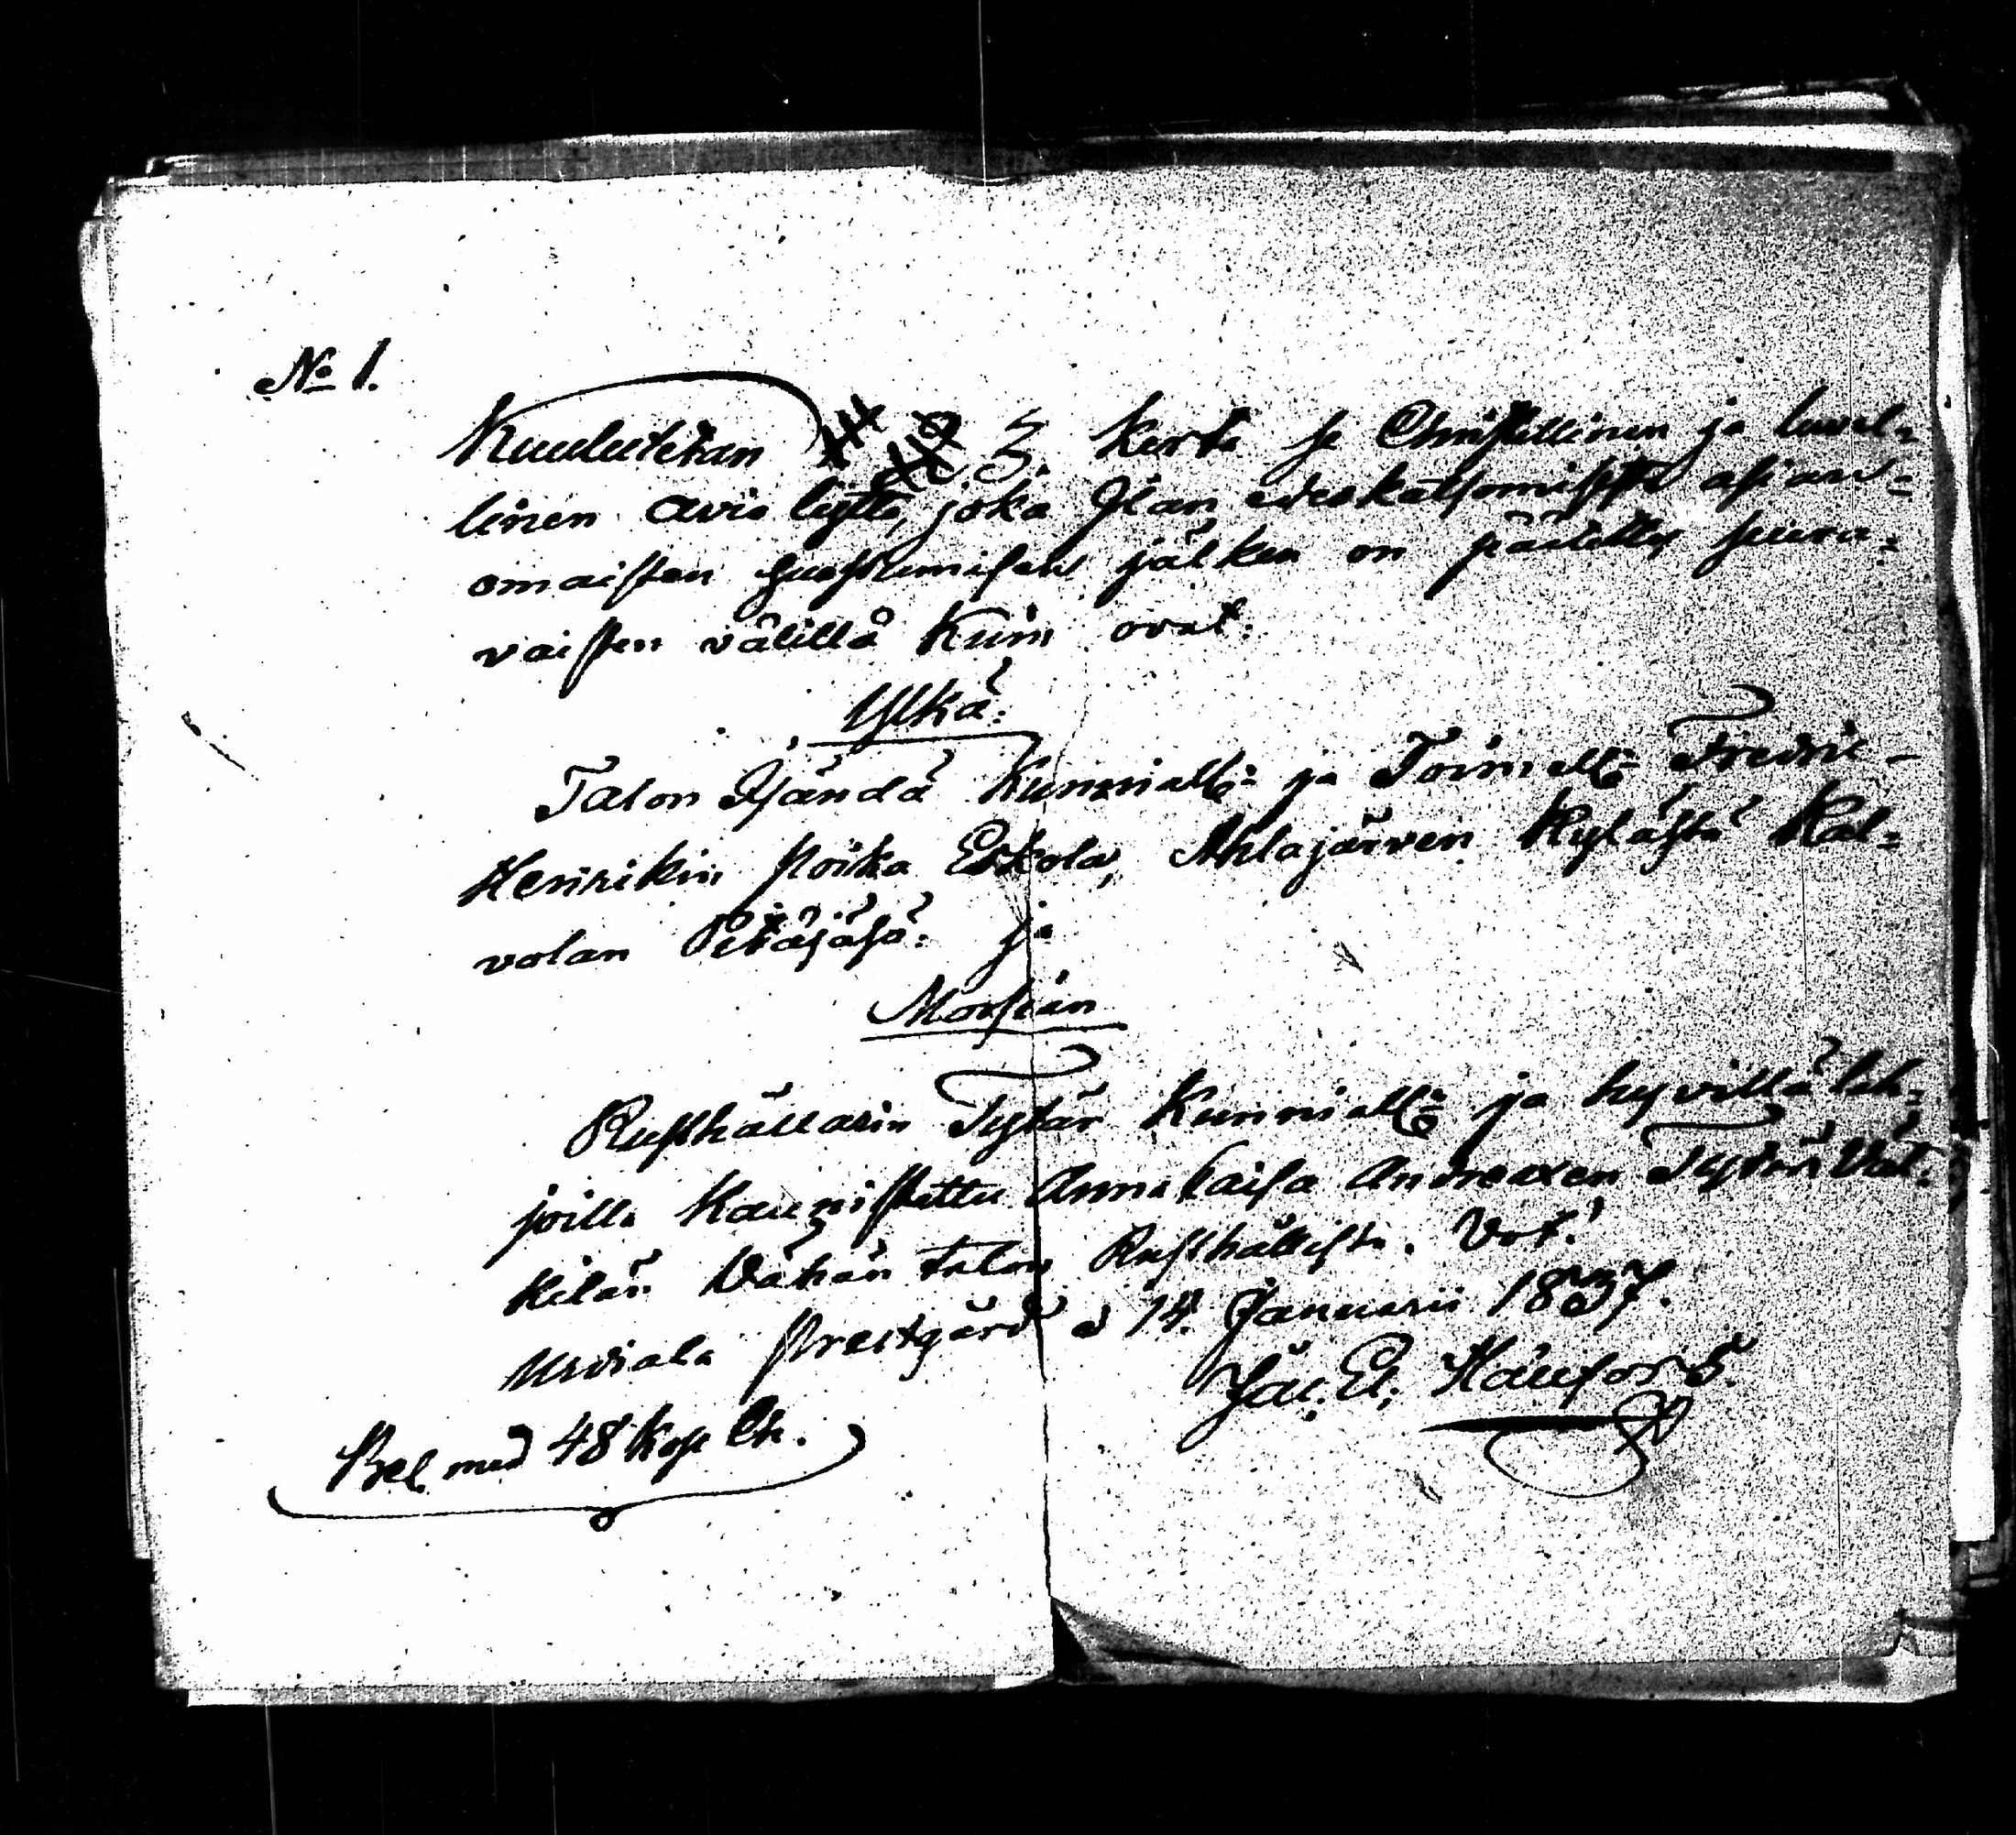 No 1.
Kuulutetan 1 2 3. Kerta se Christillinen ja luval=
linen avio liytto, joka Ilan edeskatsomisesta asian=
omaisten suostumisen jälken on päätetty seura=
vaisten välillä Kuin ovat:
Ylkä:
Talon Isändä Kunnialle: ja Toimelle: Fredric
Henrikin poika Eskola, Ahlajärven Kylästä Kal=
volan Pitäjäsä: ja
Morsian
Rusthållarin Tytär Kunnialle: ja hyvillä leh=
joilla Kaunistettu Anna Caisa Andreaxen Tytär Väl=
kilän Vähän talon Rusthållista. Vot!
Urdiala Prestgård d 14. Januarii 1837.
Jac. El. Häufors.
Bel. med 48 Kop Ch.